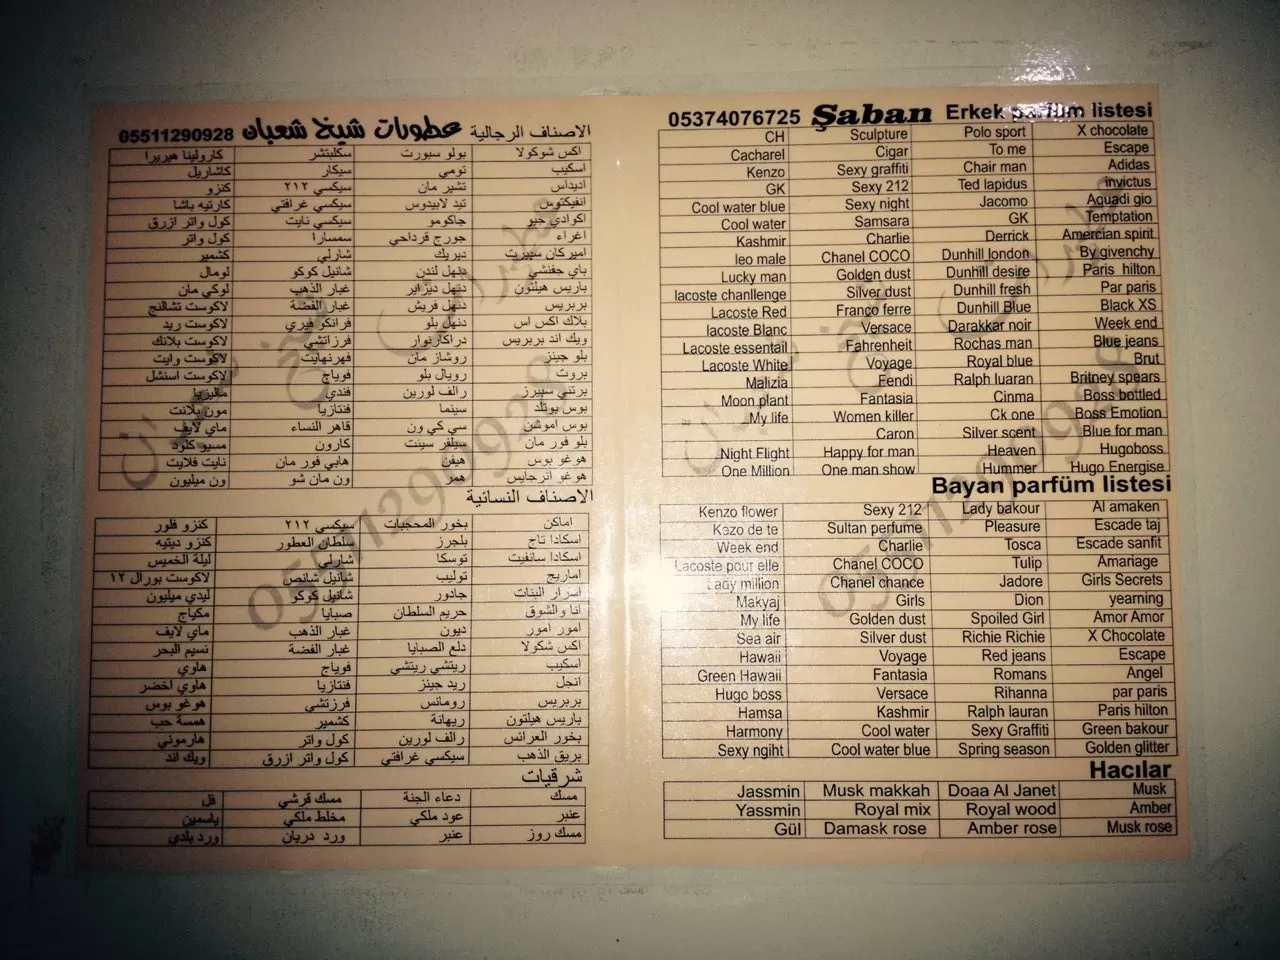 الاصناف الرجالية عطورات شيخ شعبان 05511290928
اكس شوكولا بولو سبورت سكلبتشر كارولينا هيريرا
اسكيب تومي سيكار كاشاريل
اديداس تشير مان سيكسي ٢١٢ كنزو
انفيكتوس تيد لابيدوس سيكسي غرافتي كارتيه باشا
اكوادي جيو جاكومو سيكسي نايت كول واتر ازرق
اغراء جورج قرداحي سمسارا كول واتر
اميركان سبيريت ديريك شارلي كشمير
باي جفنشي دنهل لندن شانيل كوكو لومال
باريس هيلتون دنهل ديزاير غبار الذهب لوكي مان
بربريس دنهل فريش غبار الفضة لاكوست تشالنج
بلاك اكس اس دنهل بلو فرانكو فيري لاكوست ريد
ويك اند بربريس دراكارنوار فرزاتشي لاكوست بلانك
بلو جينز روشاز مان فهرنهايت لاكوست وايت
بروت رويال بلو فوياج لاكوست اسنشل
برتني سبيرز رالف لورين فندي ماليزيا
بوس بوتلد سينما فنتازيا مون بلانت
بوس اموشن سي كي ون قاهر النساء ماي لايف
بلو فور مان سيلفر سينت كارون مسيو كلود
هوغو بوس هيفن هابي فور مان نايت فلايت
هوغو انرجايس همر ون مان شو ون ميليون
الاصناف النسائية
اماكن بخور المحجبات سيكسي ٢١٢ كنزو فلور
اسكادا تاج بلجرز سلطان العطور كنزو ديتيه
اسكادا سانفيت توسكا شارلي ليلة الخميس
اماريج توليب شانيل شانص لاكوست بورال ١٢
اسرار البنات جادور شانيل كوكو ليدي ميليون
انا والشوق حريم السلطان صبايا مكياج
امور امور ديون غبار الذهب ماي لايف
اكس شكولا دلع الصبايا غبار الفضة نسيم البحر
اسكيب ريتشي ريتشي فوياج هاوي
انجل ريد جينز فنتازيا هاوي اخضر
بربريس رومانس فرزتشي هوغو بوس
باريس هيلتون ريهانة كشمير همسة حب
بخور العرائس رالف لورين كول واتر هارموني
بريق الذهب سيكسي غرافتي كول واتر ازرق ويك اند
شرقيات
مسك دعاء الجنة مسك قرشي فل
عنبر عود ملكي مخلط ملكي ياسمين
مسك روز عنبر ورد دريان ورد بلدي
05374076725 Şaban Erkek parfüm listesi
CH Sculpture Polo sport X chocolate
Cacharel Cigar To me Escape
Kenzo Sexy graffiti Chair man Adidas
GK Sexy 212 Ted lapidus invictus
Cool water blue Sexy night Jacomo Aquadi gio
Cool water Samsara GK Temptation
Kashmir Charlie Derrick Amercian spirit
leo male Chanel COCO Dunhill london By givenchy
Lucky man Golden dust Dunhill desire Paris hilton
lacoste chanllenge Silver dust Dunhill fresh Par paris
Lacoste Red Franco ferre Dunhill Blue Black XS
lacoste Blanc Versace Darakkar noir Week end
Lacoste essentail Fahrenheit Rochas man Blue jeans
Lacoste White Voyage Royal blue Brut
Malizia Fendi Ralph luaran Britney spears
Moon plant Fantasia Cinma Boss bottled
My life Women killer Ck one Boss Emotion
Caron Silver scent Blue for man
Night Flight Happy for man Heaven Hugoboss
One Million One man show Hummer Hugo Energise
Bayan parfüm listesi
Kenzo flower Sexy 212 Lady bakour Al amaken
Kezo de te Sultan perfume Pleasure Escade taj
Week end Charlie Tosca Escade sanfit
Lacoste pour elle Chanel COCO Tulip Amariage
Lady million Chanel chance Jadore Girls Secrets
Makyaj Girls Dion yearning
My life Golden dust Spoiled Girl Amor Amor
Sea air Silver dust Richie Richie X Chocolate
Hawaii Voyage Red jeans Escape
Green Hawaii Fantasia Romans Angel
Hugo boss Versace Rihanna par paris
Hamsa Kashmir Ralph lauran Paris hilton
Harmony Cool water Sexy Graffiti Green bakour
Sexy ngiht Cool water blue Spring season Golden glitter
Hacılar
Jassmin Musk makkah Doaa Al Janet Musk
Yassmin Royal mix Royal wood Amber
Gül Damask rose Amber rose Musk rose